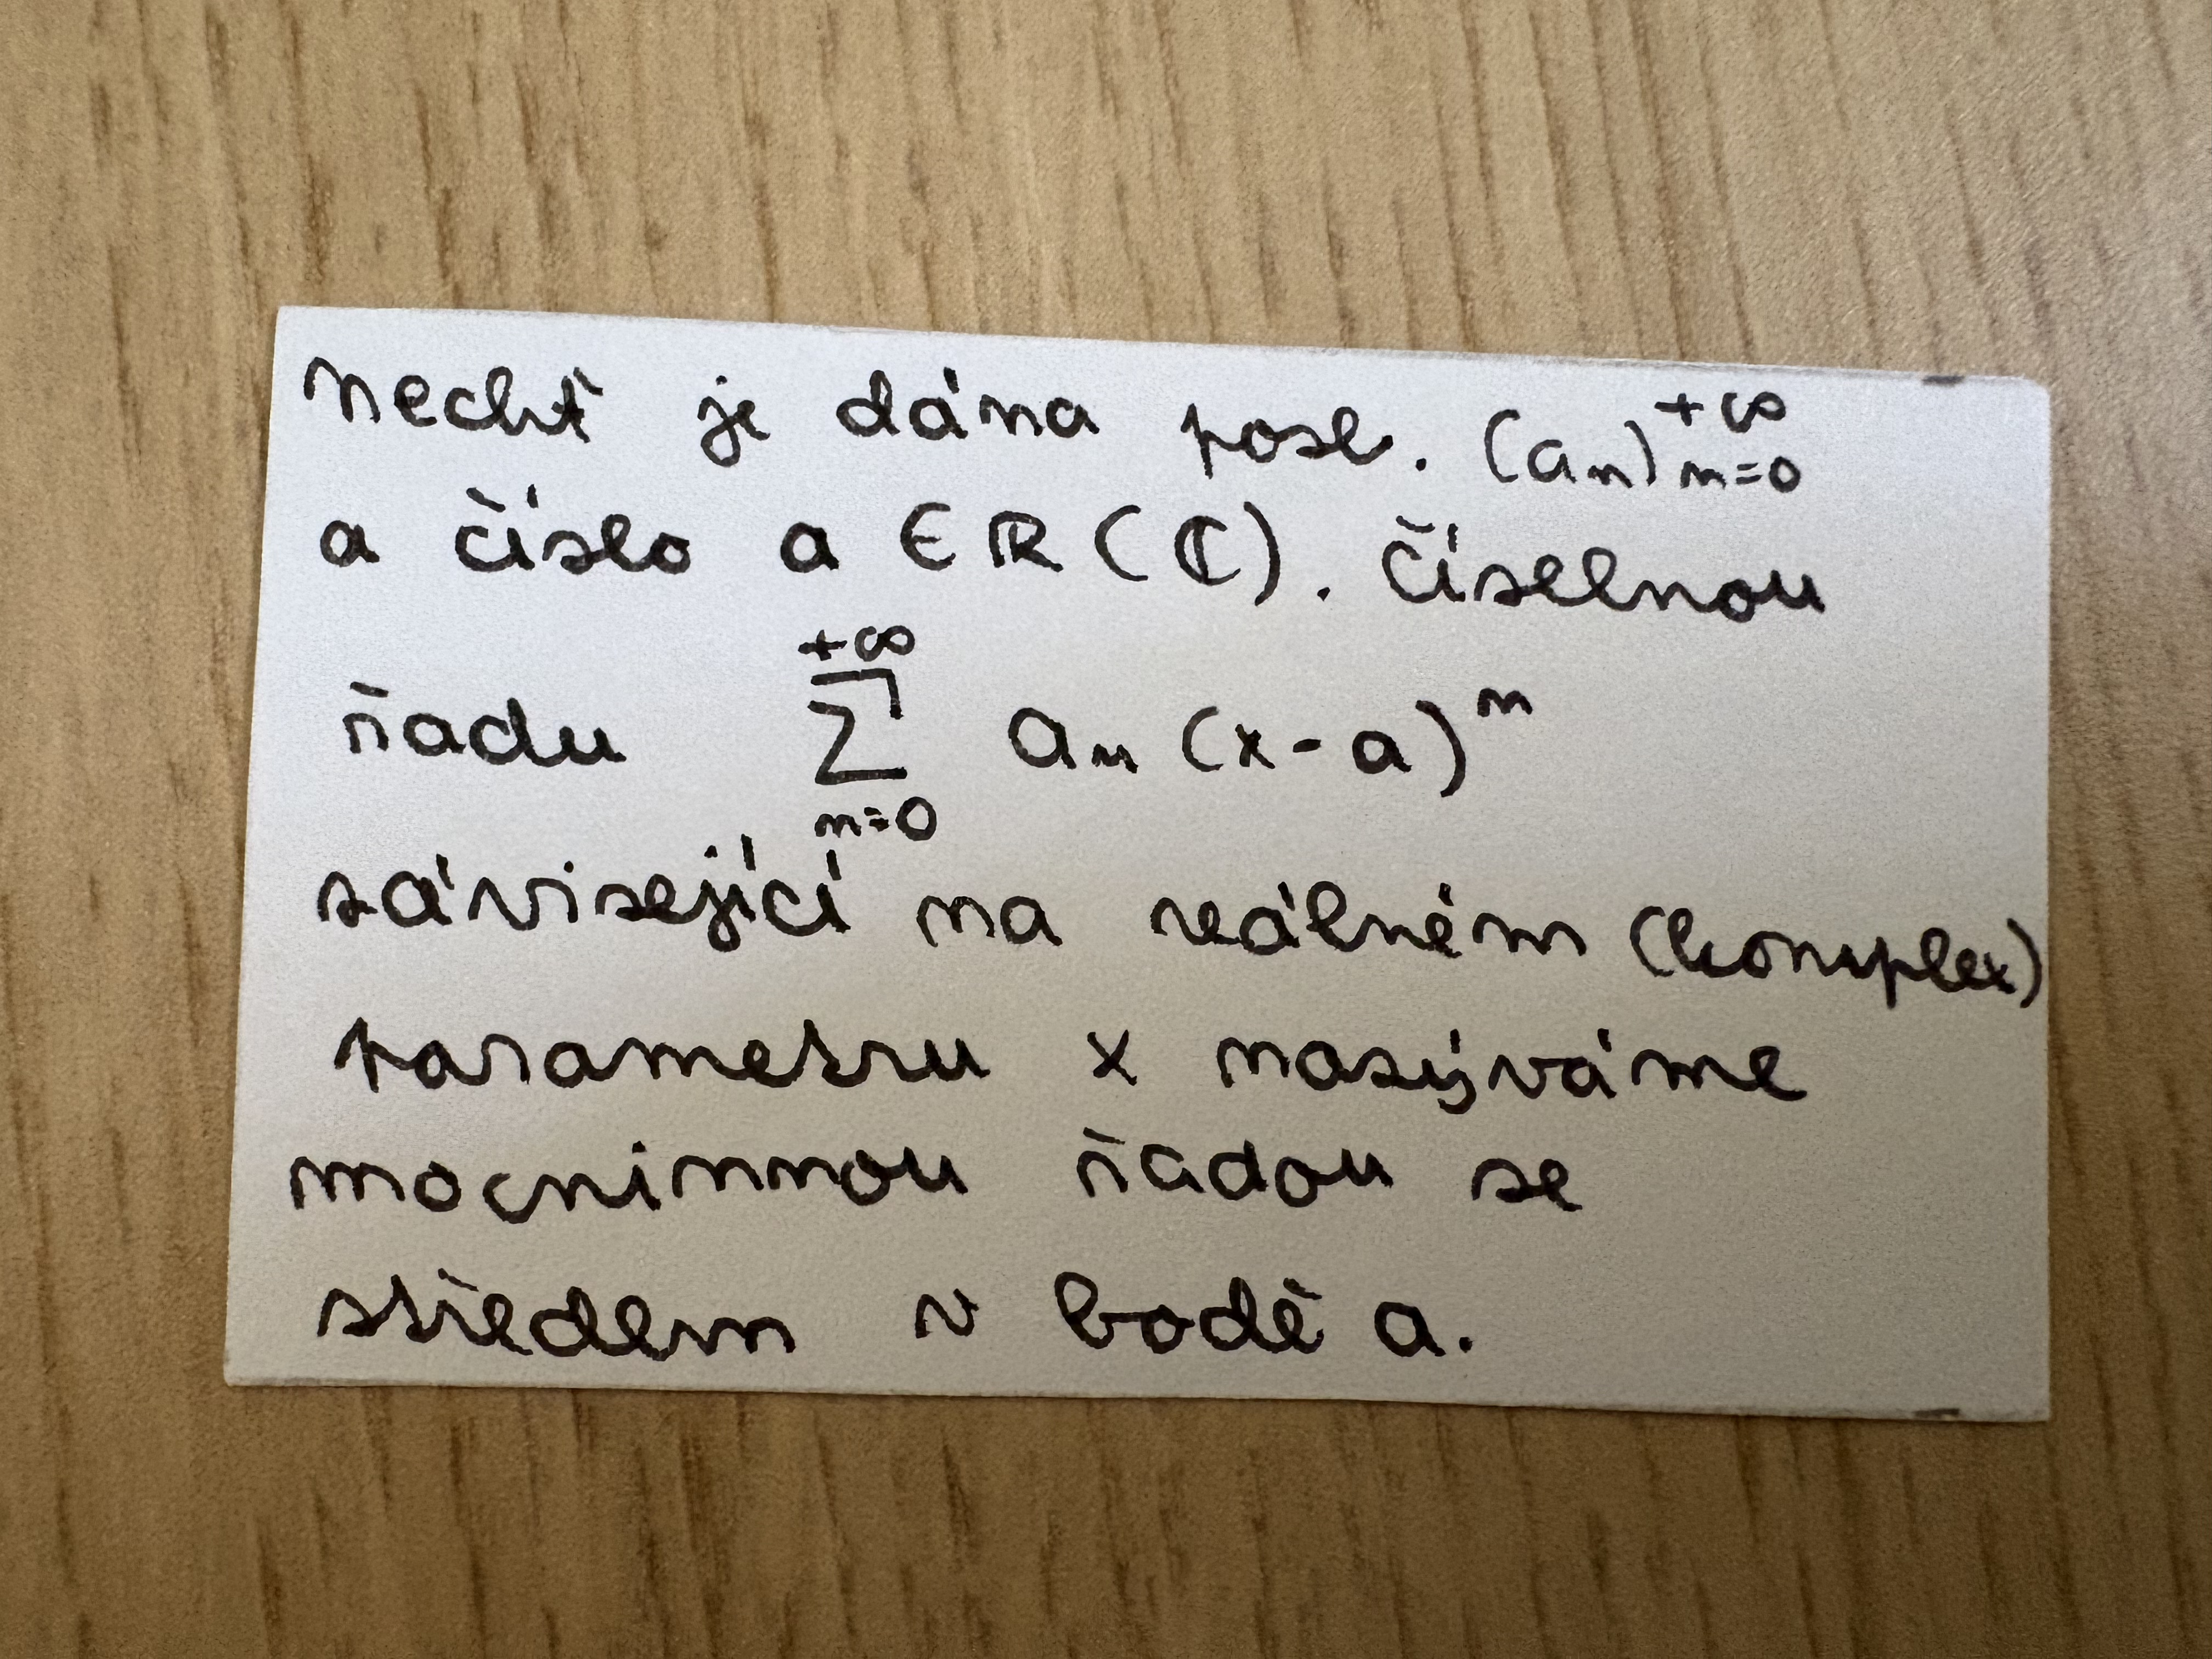 Nechť je dána posl. (aₙ)ₙ₌₀⁺∞
a číslo a ∈ ℝ (ℂ). Číselnou
řadu ∑ₙ₌₀⁺∞ aₙ (x-a)ⁿ
závisející na reálném (komplex)
parametru x nazýváme
mocninnou řadou se
středem v bodě a.